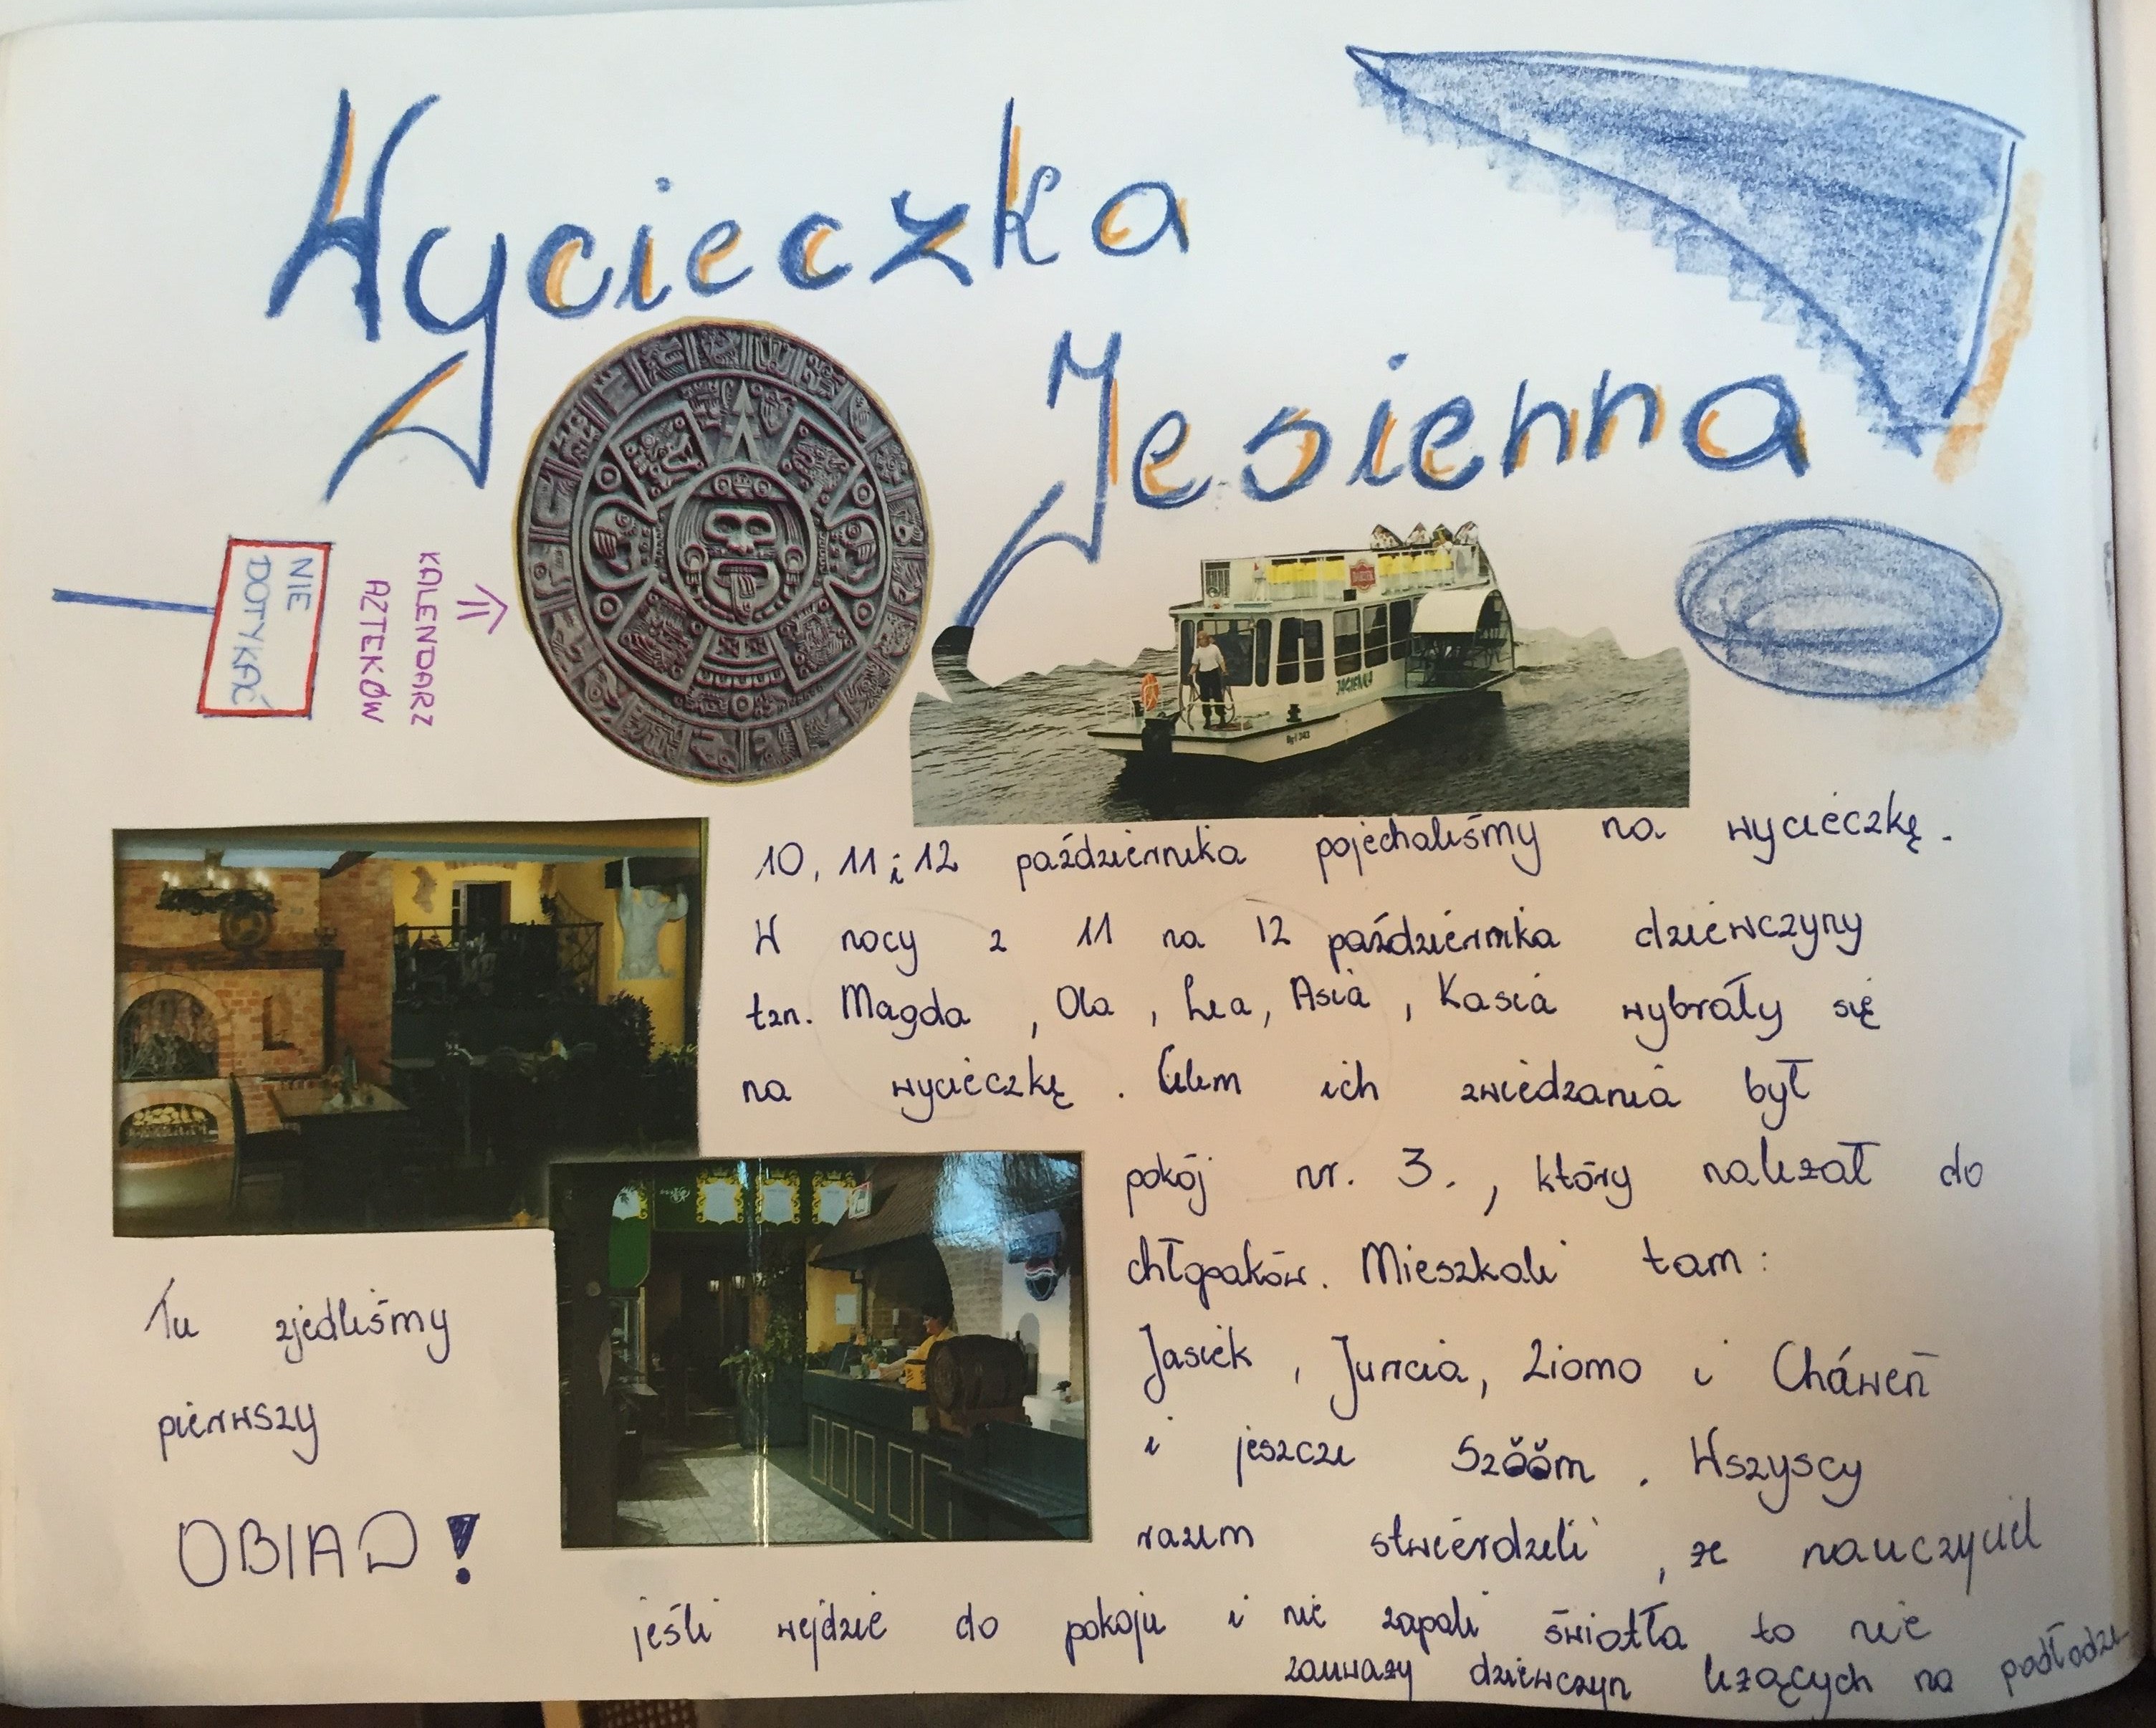 Wycieczka
Jesienna
KALENDARZ
AZTEKÓW
NIE
DOTYKAĆ
JAGIENKA
10, 11 i 12 października pojechaliśmy na wycieczkę.
W nocy z 11 na 12 października dziewczyny
tzn. Magda, Ola, Lea, Asia, Kasia wybrały się
na wycieczkę. Celem ich zwiedzania był
pokój nr. 3., który należał do
chłopaków. Mieszkali tam:
Jasiek, Jurcia, Ziomo i Cháweń
i jeszcze Szǒǒm. Wszyscy
razem stwierdzili, że nauczyciel
jeśli wejdzie do pokoju i nie zapali światła to nie
zauważy dziewczyn leżących na podłodze
Tu zjedliśmy
pierwszy
OBIAD!